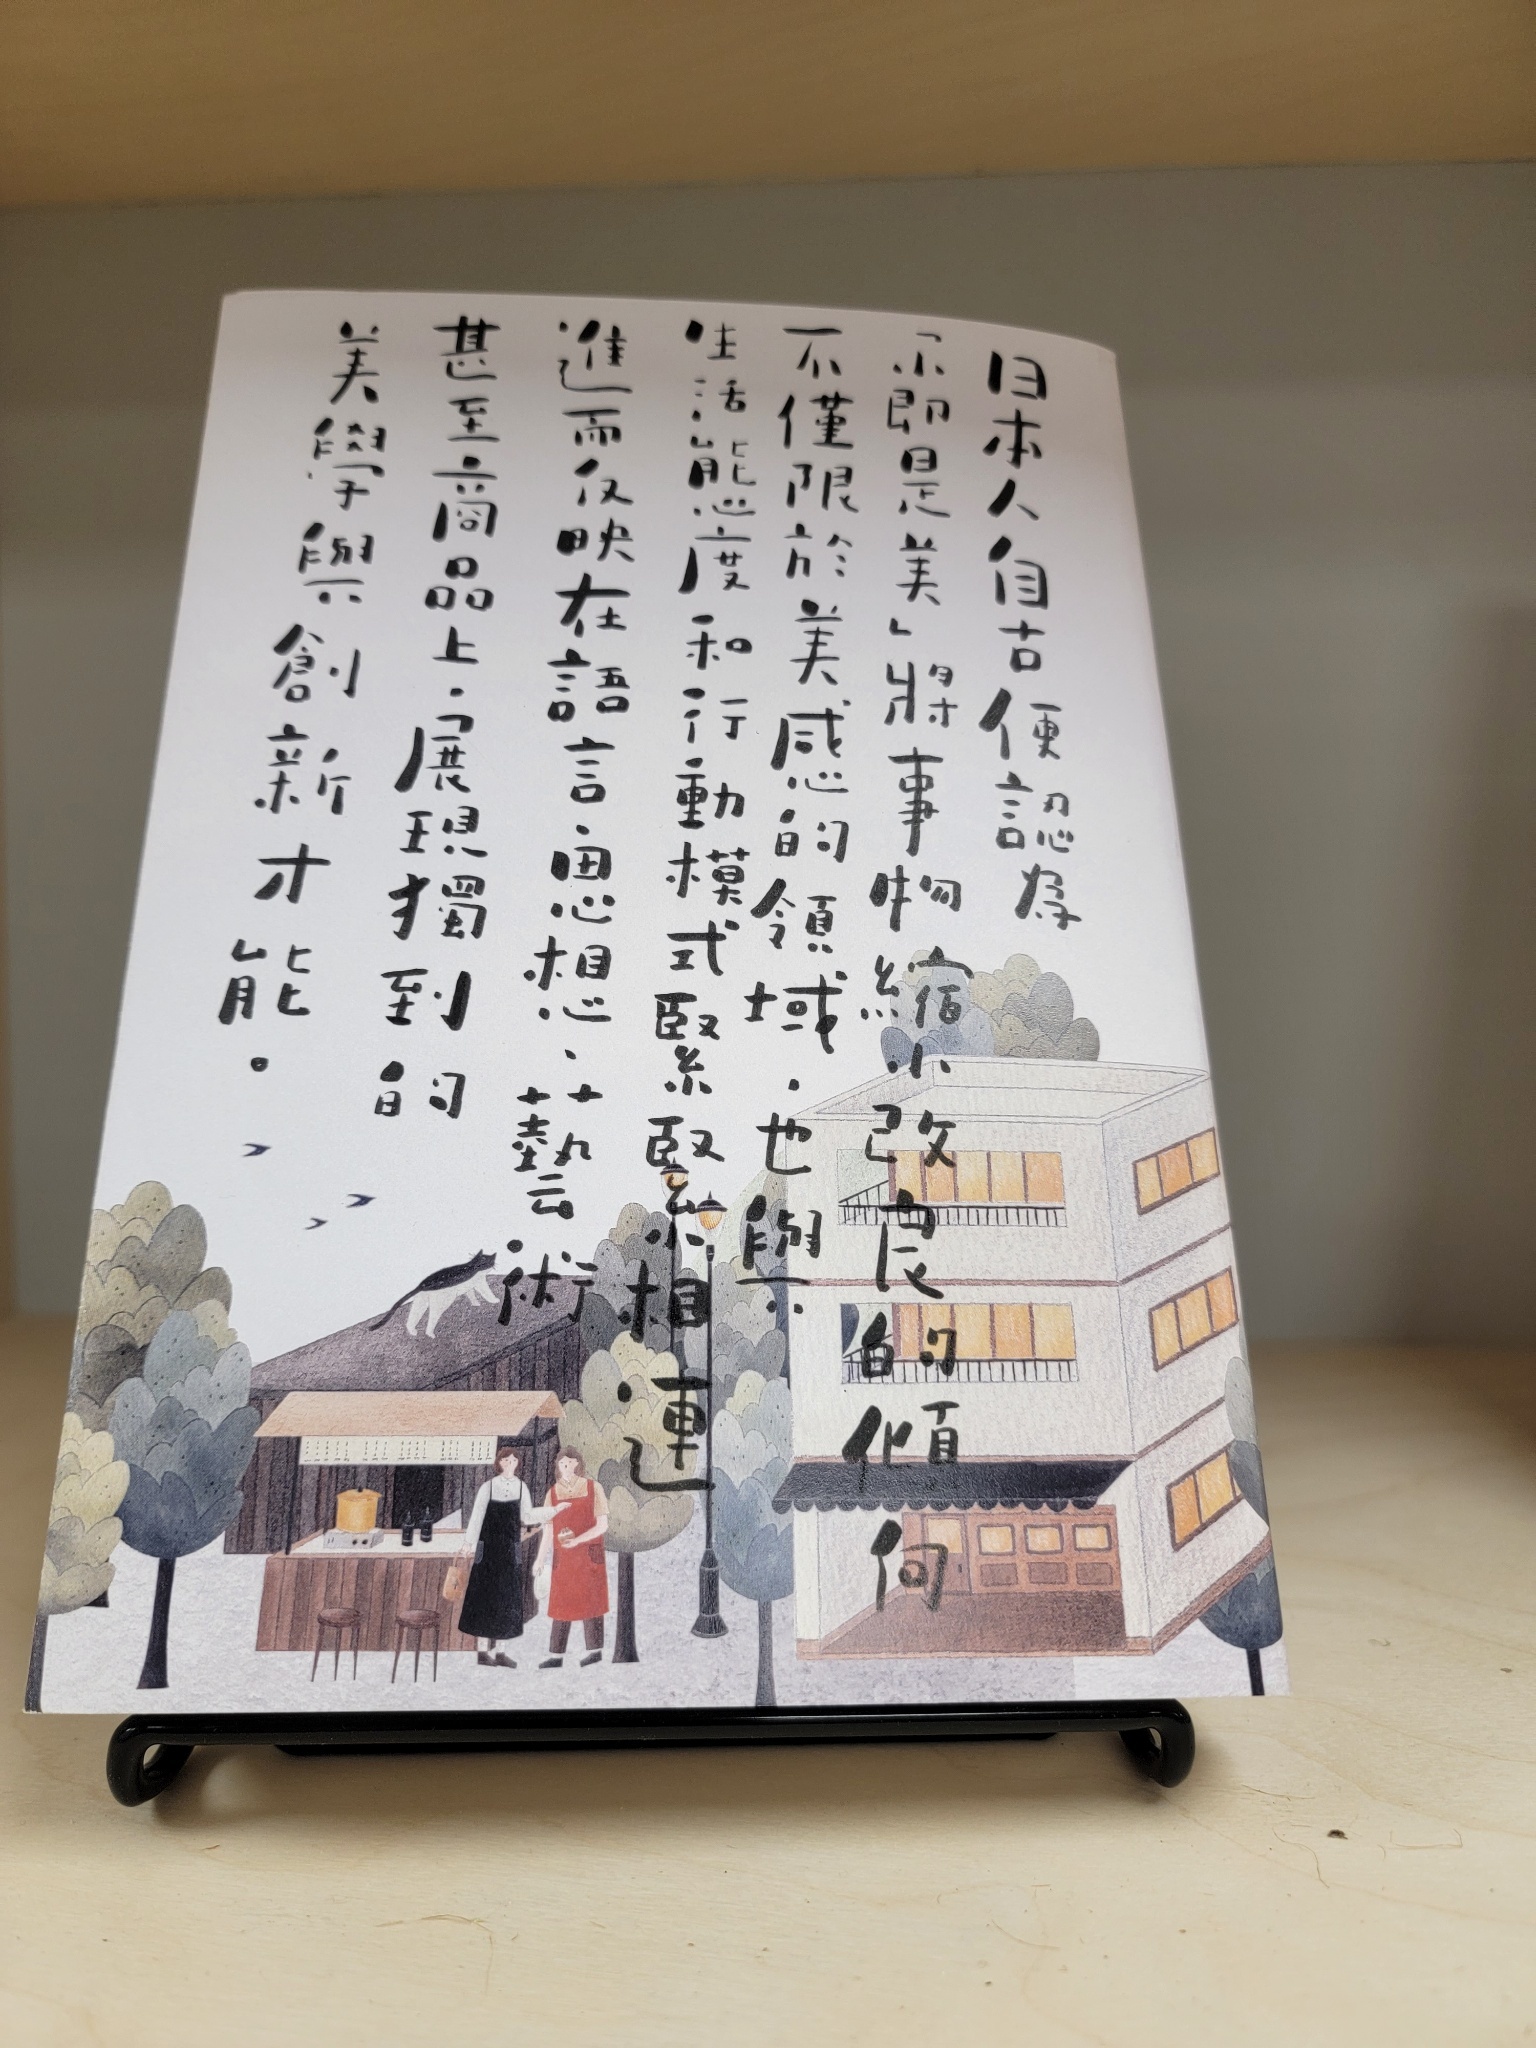 日本人自古便認為
小即是美」將事物縮小改良的傾向
不僅限於美感的領域，也與
生活態度和行動模式緊緊相連
進而反映在語言、思想、藝術
甚至商品上，展現獨到的
美學與創新才能。